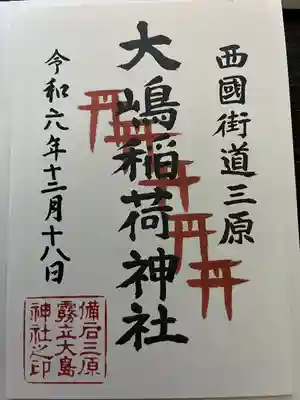 西國街道三原
大嶋稲荷神社
令和六年十二月十八日
備后三原
霧立大島
神社之印